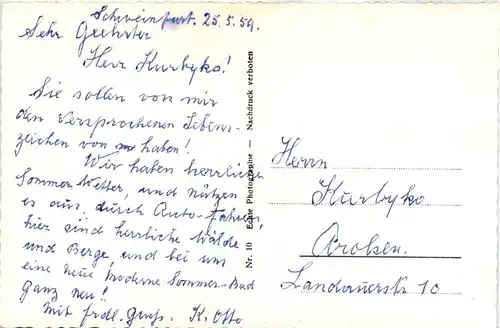 Schweinfurt. 25.5.59.
Sehr Geehrter
Herr Kurbyko!
Sie sollen von mir
den versprochenen Lebens-
zeichen von haben!
Wir haben herrliche
Sommer Wetter, und nützen
es aus, durch Auto-fahren,
hier sind herrliche Wälde
und Berge, und bei uns
eine neue, moderne Sommer-Bad
ganz neu!
Mit frdl. Gruß. K. Otto
Nr. 10 Echte Photographie — Nachdruck verboten
Herrn
Kurbyko
Arolsen.
Landauerstr 10